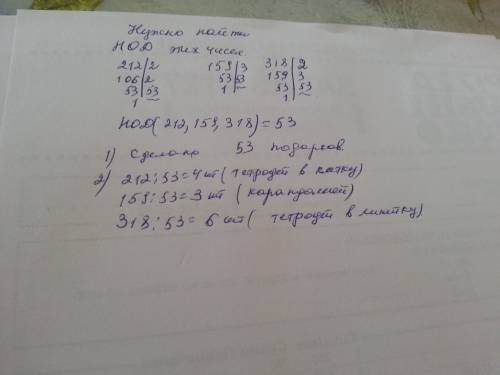 Нужно найти
НОД этих чисел.
212|2 159|3 318|2
106|2 53|53 159|3
53|53 1 53|53
1 1
НОД(212,159,318)=53
1) Сделано 53 подарков.
2) 212:53=4 шт (тетрадей в клетку)
159:53=3 шт (карандашей)
318:53=6 шт (тетрадей в линейку)